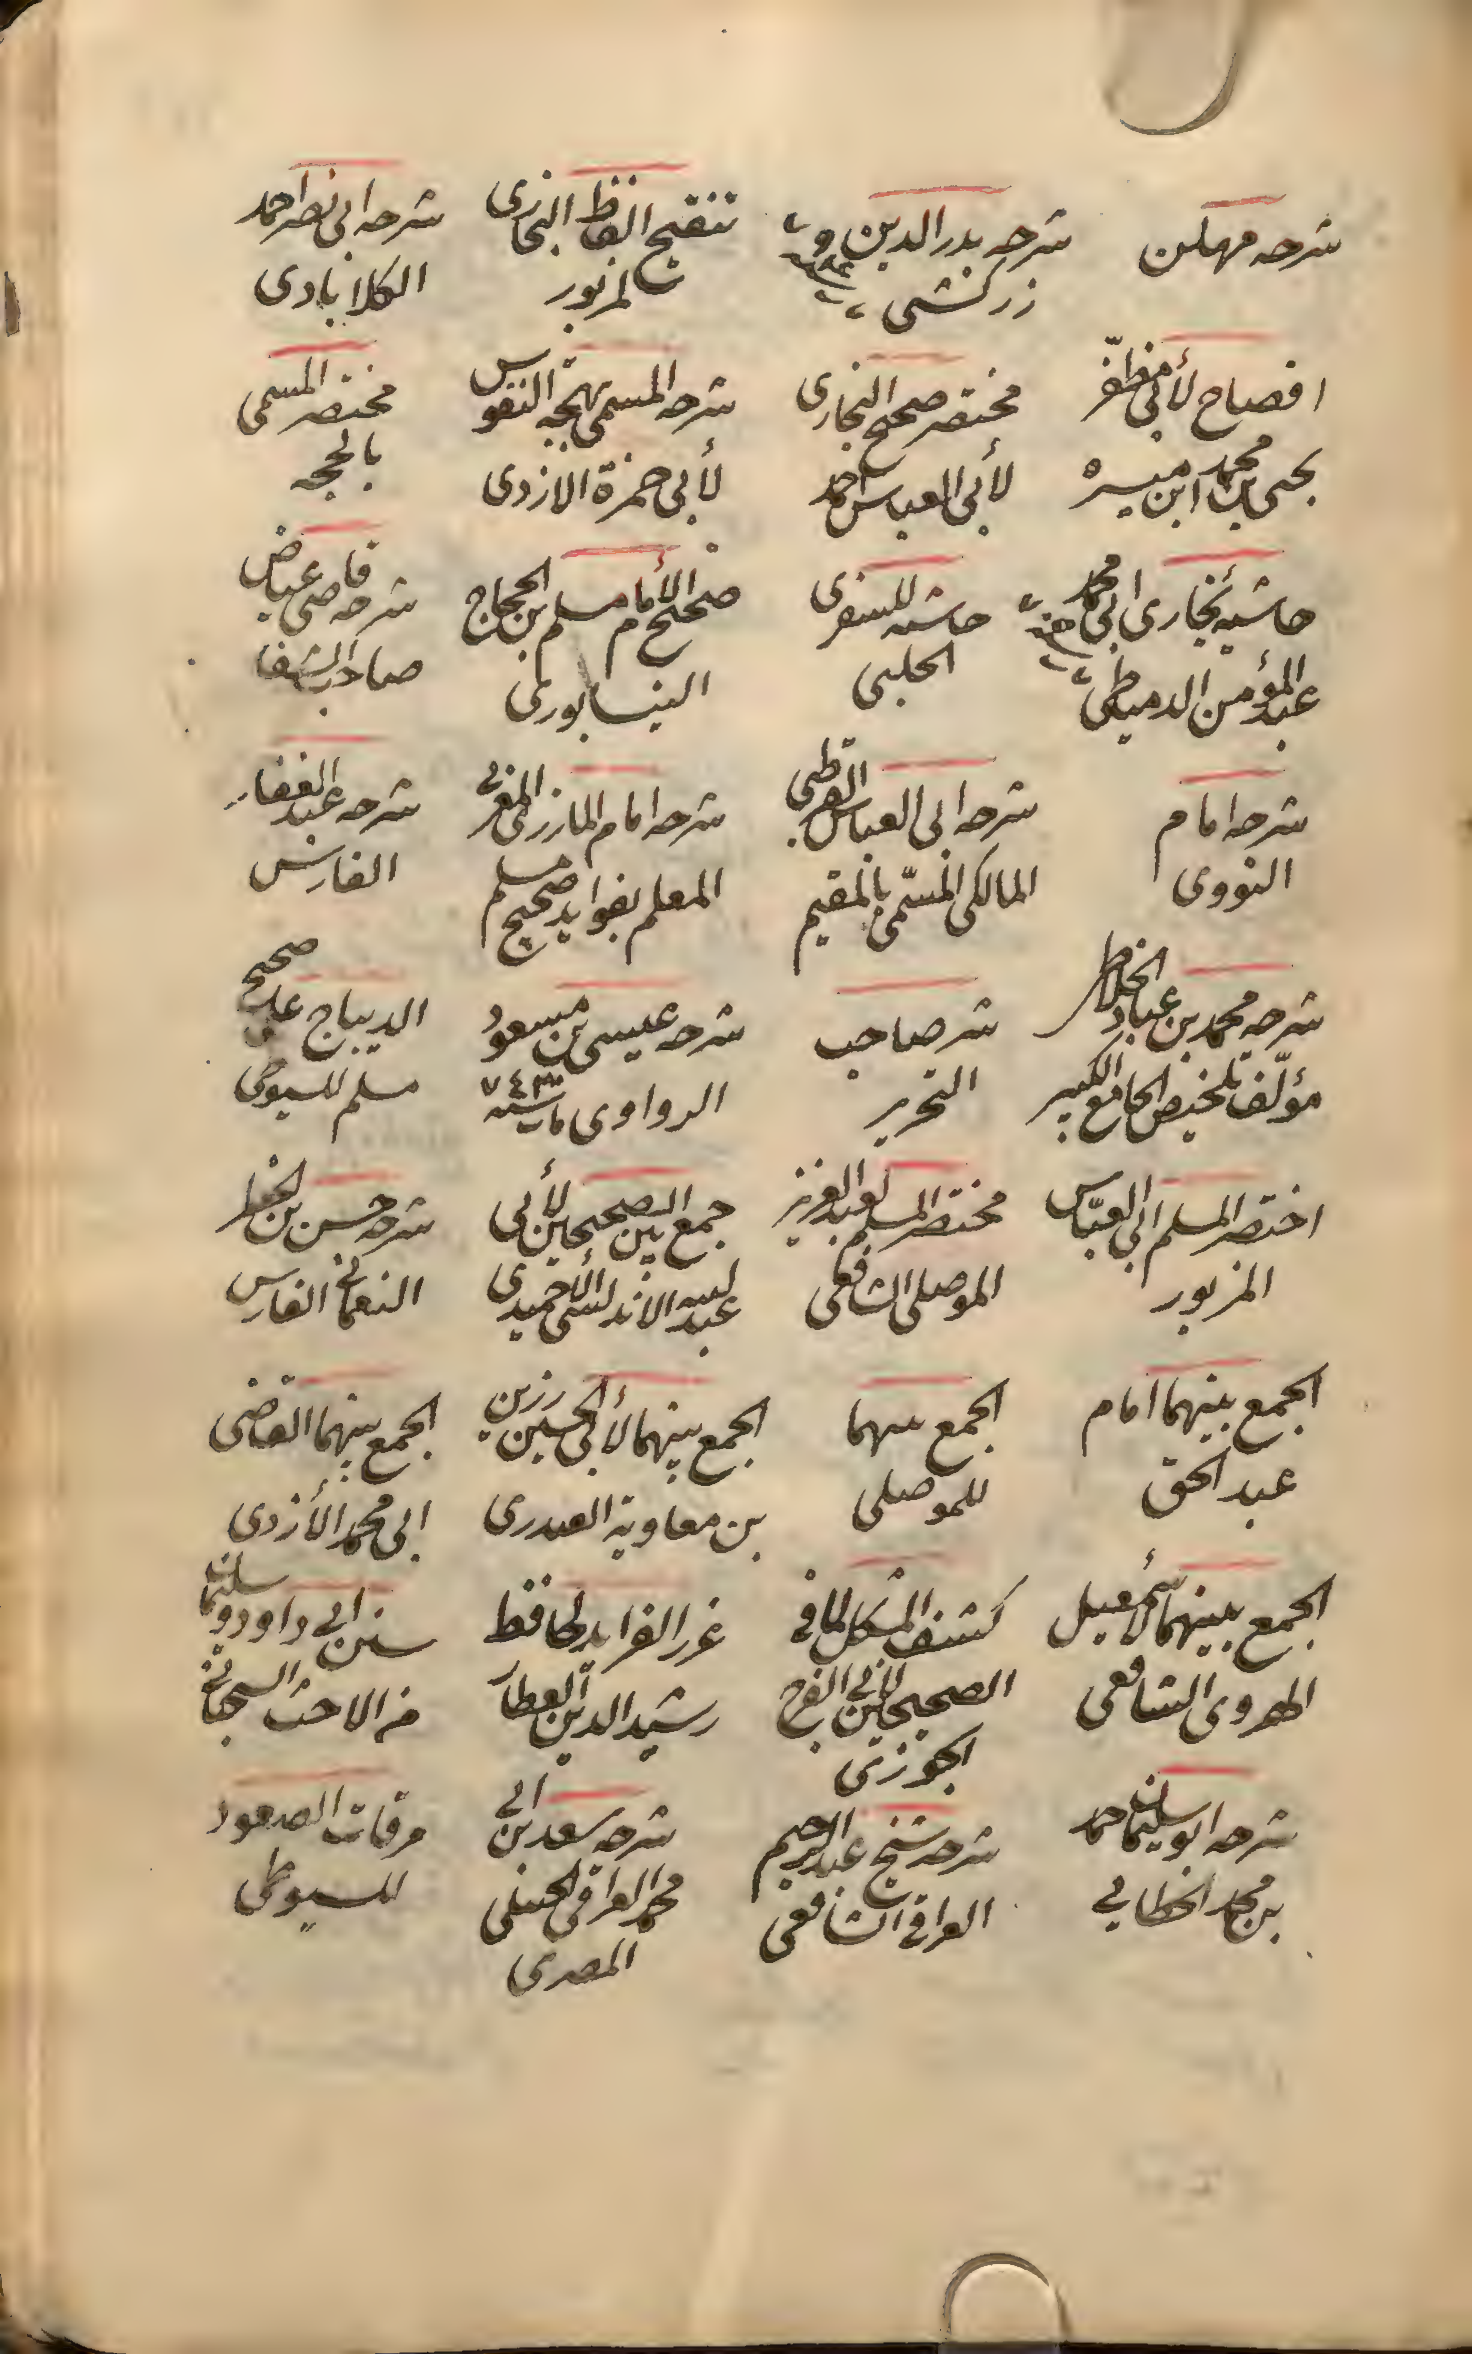 شرحه مهلن
شرحه بدر الدين و
زركشى
تنقيح الفاظ البخارى
لمزبور
شرحه ابى نصر احمد
الكلابادى
افصاح لأبى مظفّر
يحيى بن محمد ابن ميسره
مختصر صحيح البخارى
لأبى العباس احمد
شرحه المسمى بهجة النفوس
لأبى حمزة الازدى
مختصر المسمى
بالحجه
حاشية بخارى ابى محمد
عبد المؤمن الدمياطى
حاشيه للسفرى
الحلبى
صحيح الأمام مسلم بن الحجاج
النيسابورى
شرحه قاضى عياض
صاحب الشفا
شرحه امام
النووى
شرحه ابى العباس القرطبى
المالكى المسمّى بالمقيم
شرحه امام المازرى المغربى
المعلم بفوايد صحيح مسلم
شرحه عبد الغفار
الفارس
شرحه محمد بن عباد الخلاطى
مؤلّف تلخيص الجامع الكبير
شر صاحب
التحرير
شرحه عيسى بن مسعود
الرواوى مات سنه ٧٤٣
الديباج على صحيح
مسلم للسيوطى
اختصر المسلم ابى العبّاس
المزبور
مختصر المسلم لعبد العزيز
الموصلى الشافعى
جمع بين الصحيحين لأبى
عبد الله الاندلسى الحميدى
شرحه حسن بن الخطير
النعمانى الفارس
الجمع بينهما امام
عبد الحق
الجمع بينهما
للموصلى
الجمع بينهما لأبى الحسين رزين
بن معاوية العبدرى
الجمع بينهما القاضى
ابى محمد الأزدى
الجمع بينهما لأسمعيل
الهروى الشافعى
كشف المشكل لما فى
الصحيحين لأبى الفرج
الجوزى
غرر الفرايد لحافظ
رشيد الدين العطار
سنن ابى داودو سليمان
السجستانى
شرحه ابو سليمان احمد
بن محمد الخطابى
شرحه شيخ عبد الرحيم
العراقى الشافعى
شرحه سعد بن ابى
محمد العراقى الحنبلى
المصرى
مرقات الصعود
للسيوطى